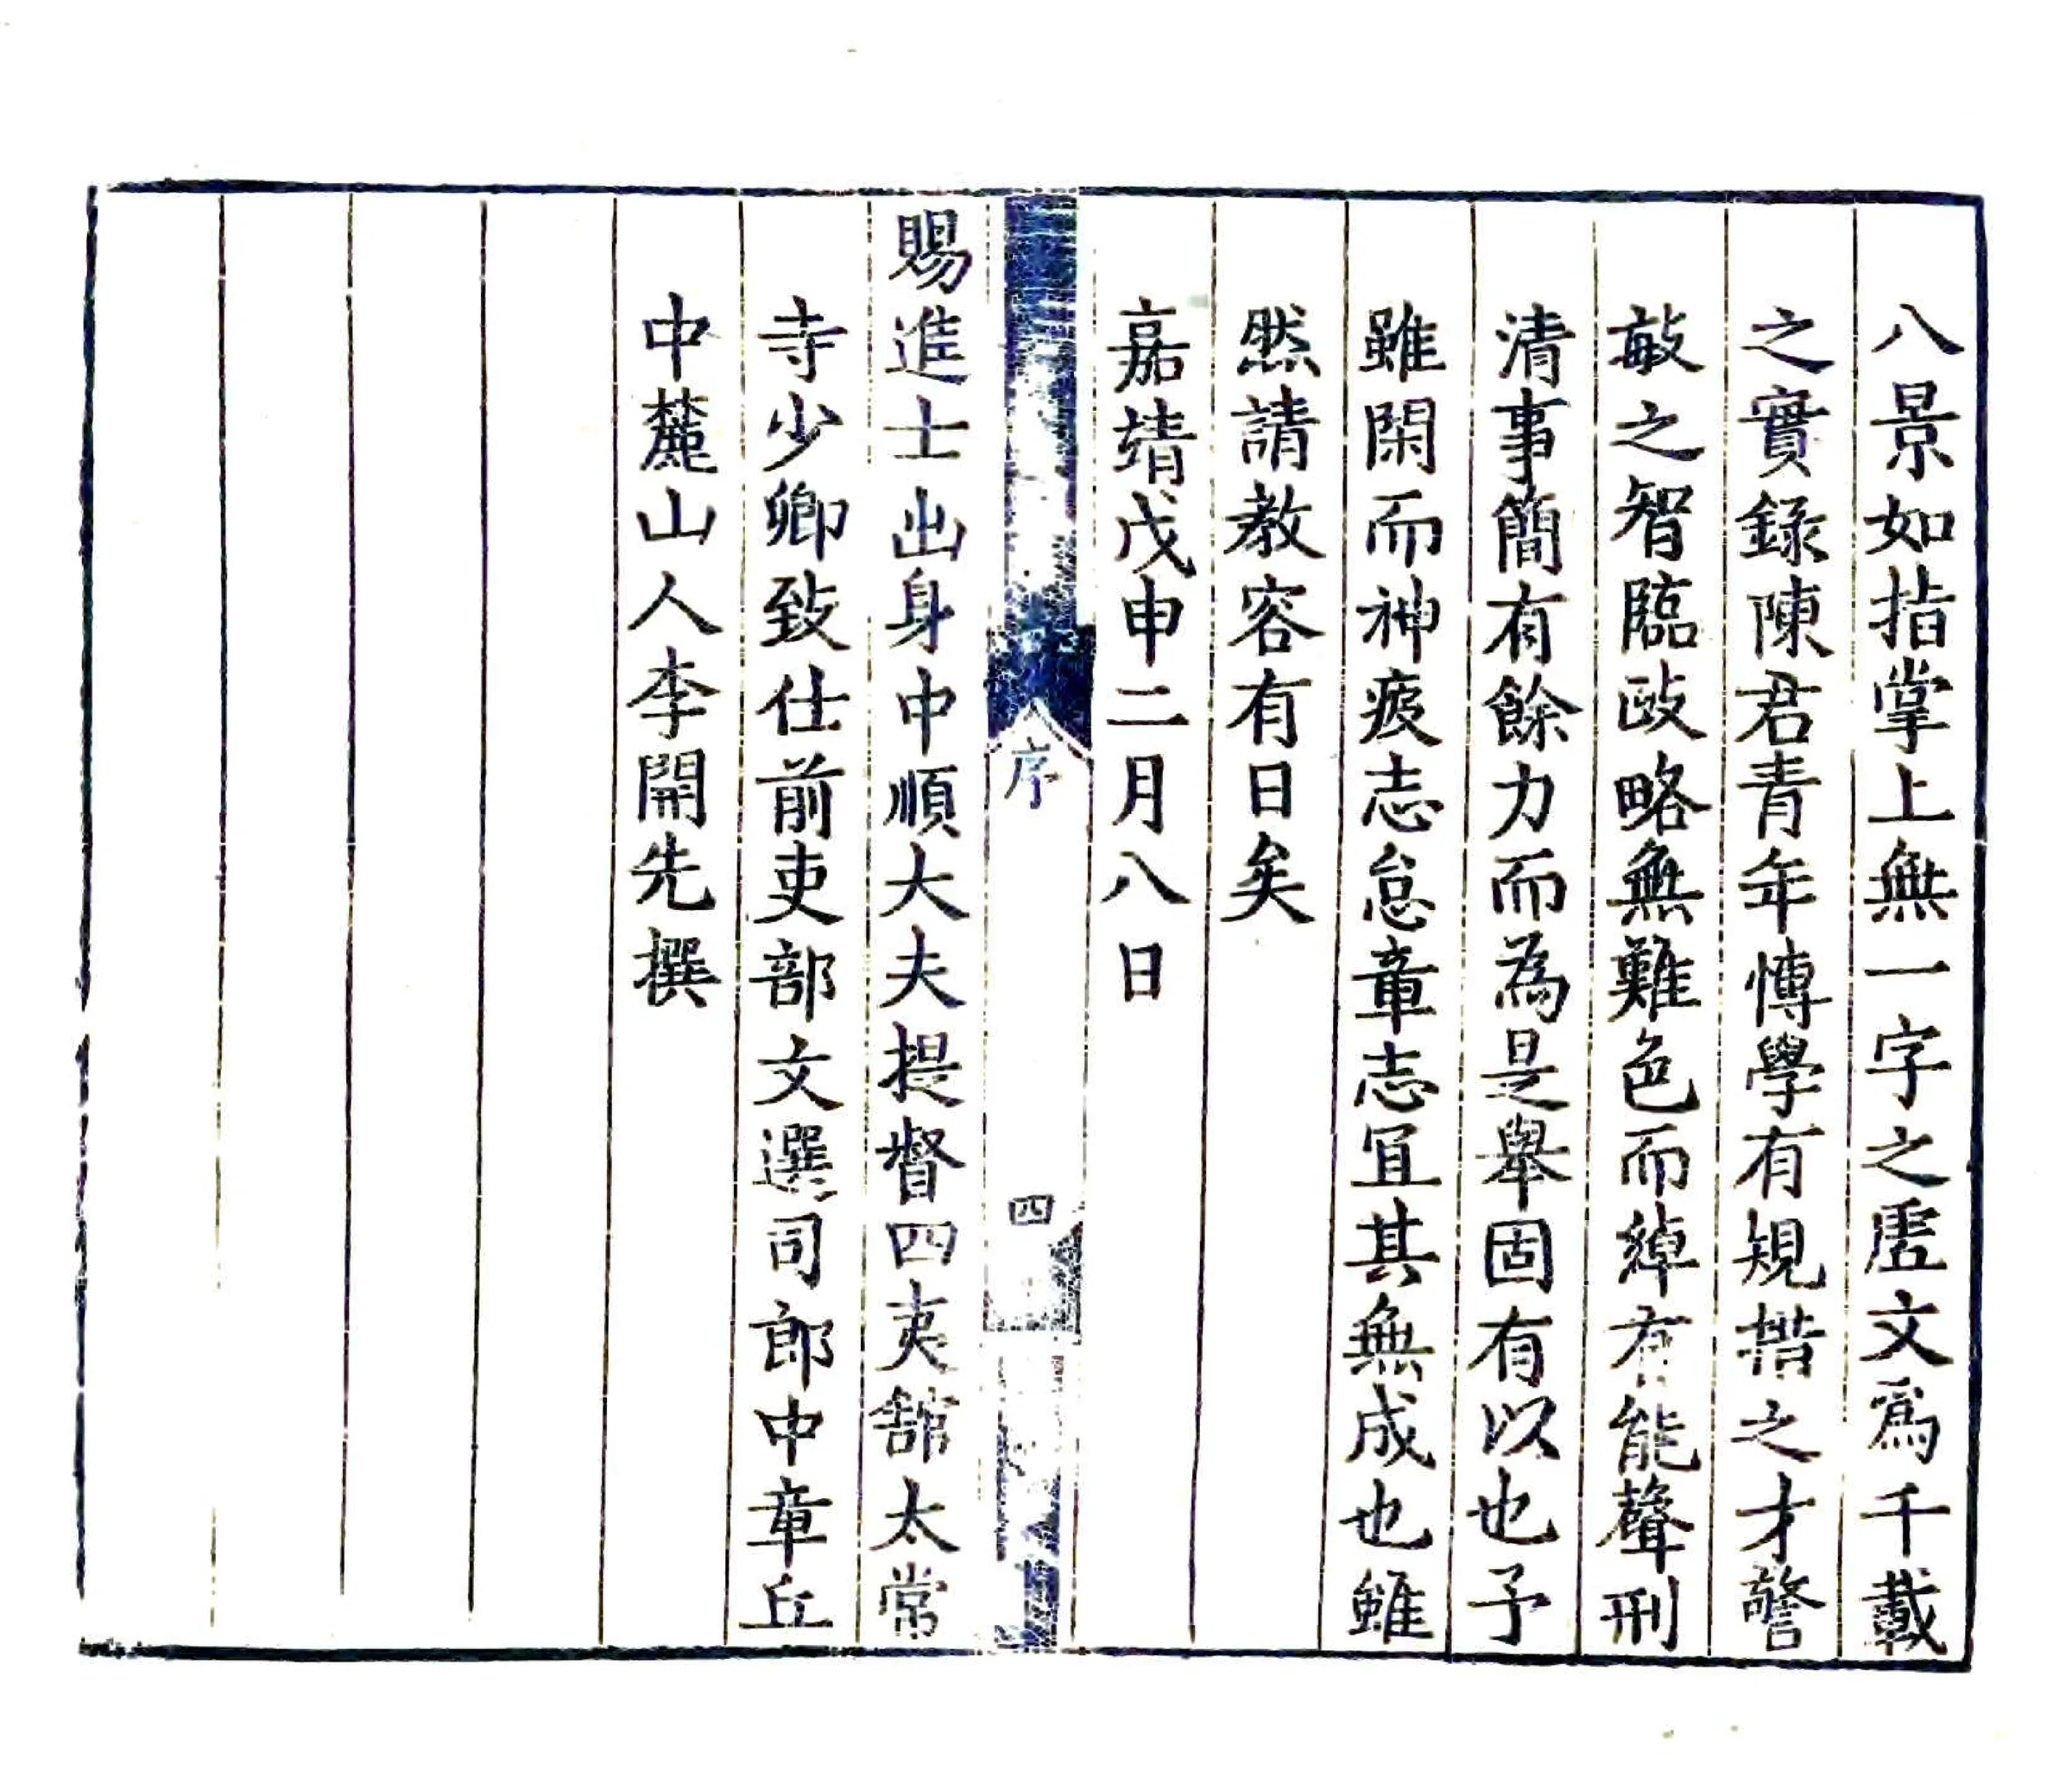 八景如指掌上無一字之虛文爲千載
之實錄陳君青年博學有規措之才警
敏之智臨政略無難色而綽有能聲刑
清事簡有餘力而為是舉固有以也予
雖閑而神疲志怠章志宜其無成也雖
然請教容有日矣
嘉靖戊申二月八日
序
四
賜進士出身中順大夫提督四夷館太常
寺少卿致仕前吏部文選司郎中章丘
中麓山人李開先撰